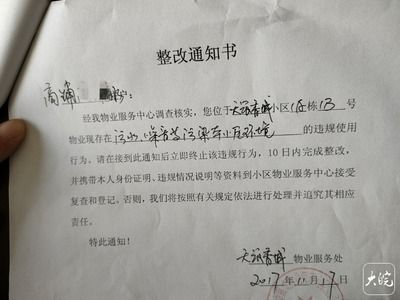 整改通知书
商铺
经我物业服务中心调查核实，您位于天瑞香城小区1幢13号
物业现存在污水、噪音等污染本小区环境的违规使用
行为。请在接到此通知后立即终止该违规行为，10日内完成整改，
并携带本人身份证明、违规情况说明等资料到小区物业服务中心接受
复查和登记。否则，我们将按照有关规定依法进行处理并追究其相应
责任。
特此通知！
物业服务处
2017年11月17日
大皖